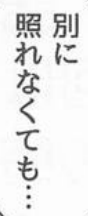 別に
照れなくても…